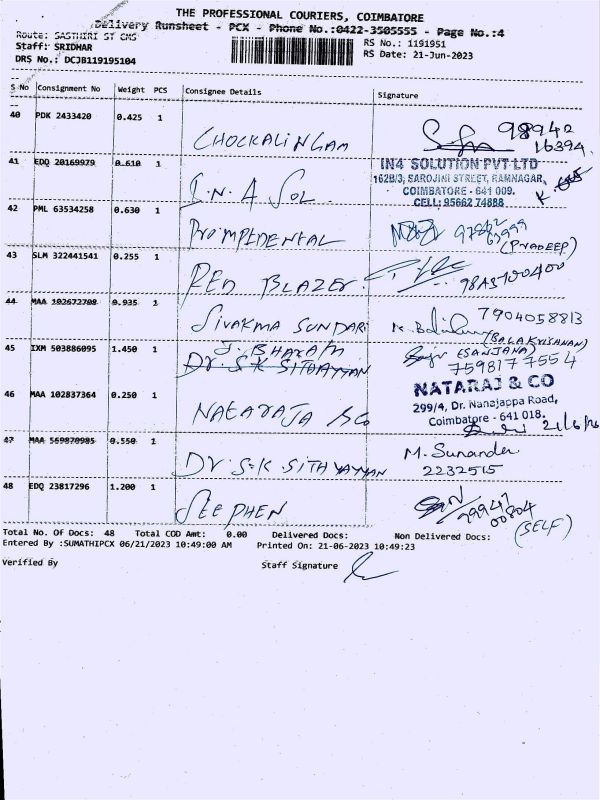 THE PROFESSIONAL COURIERS, COIMBATORE
Delivery Runsheet - PCX - Phone No.:0422-3505555 - Page No.:4
Route: SASTHIRI ST CMS
RS No.: 1191951
Staff: SRIDHAR
RS Date: 21-Jun-2023
DRS No.: DCJB119195104
S No Consignment No Weight PCS Consignee Details Signature
40 PDK 2433420 0.425 1 CHOCKALINGAM 98942
16394
41 EDQ 20169979 0.610 1 I.N.A SOL
IN4 SOLUTION PVT LTD
162B/3, SAROJINI STREET, RAMNAGAR,
COIMBATORE - 641 009.
CELL: 95662 74888
42 PML 63534258 0.630 1 PROMPTDENTAL
(PRADEEP)
43 SLM 322441541 0.255 1 RED BLAZER
44 MAA 102672708 0.935 1 SIVAKMA SUNDARI 7904058813
(BALAKRISHNAN)
45 IXM 503886095 1.450 1 J. BHARAM (SANJANA)
Dr. S K SITHAYYAN 7598177554
46 MAA 102837364 0.250 1 NATARAJA & CO
NATARAJ & CO
299/4, Dr. Nanajappa Road,
Coimbatore - 641 018.
47 MAA 569870985 0.550 1 Dr S.K SITHAYYAN M. Sunanda
2232515
48 EDQ 23817296 1.200 1 STEPHEN 99947
00804
(SELF)
Total No. Of Docs: 48 Total COD Amt: 0.00 Delivered Docs: Non Delivered Docs:
Entered By :SUMATHIPCX 06/21/2023 10:49:00 AM Printed On: 21-06-2023 10:49:23
Verified By Staff Signature